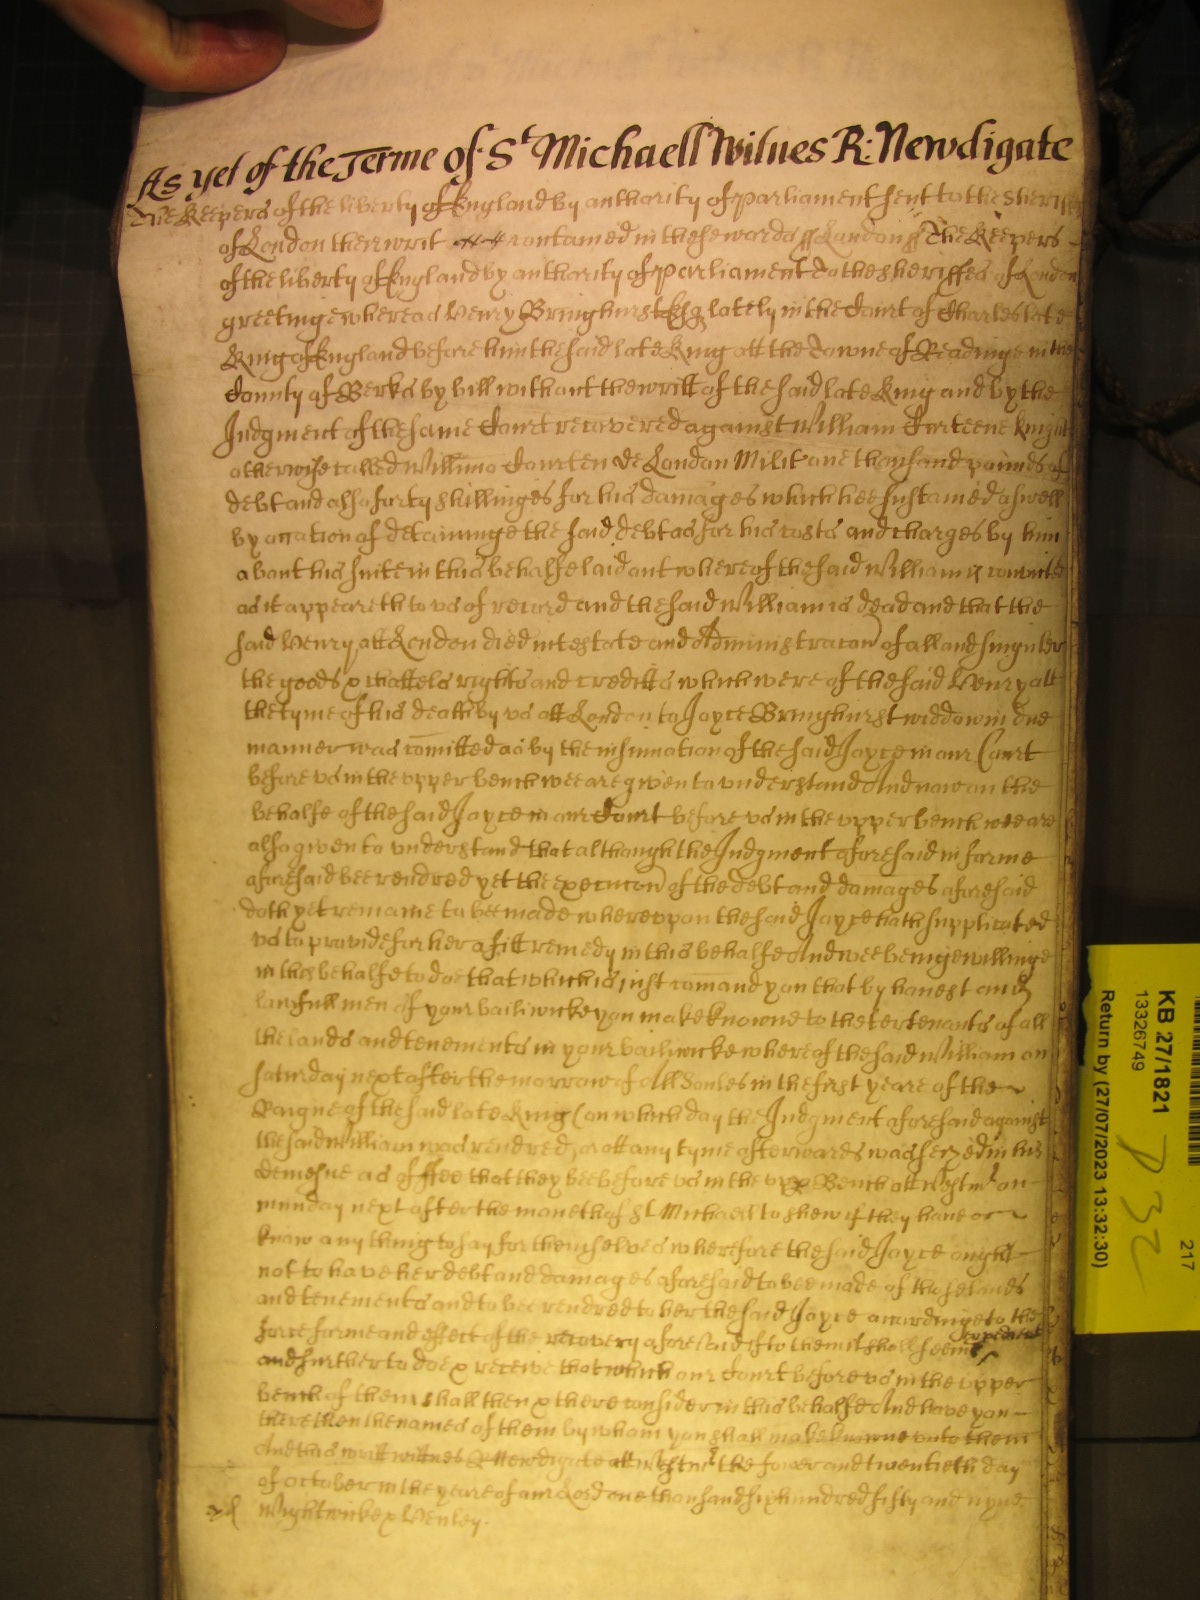 As yet of the Terme of St Michaell Witnes R: Newdigate
The Keepers of the liberty of England by authority of parliament sent to the Sheriffes
of London their writ contained in these words ss London ss The Keepers
of the liberty of England by authority of parliament To the sheriffes of London
greetinge whereas Henry Bringhurst Esq lately in the Court of Charles late
King of England before him the said late King att the Towne of Readinge in the
County of Berks by bill without the writt of the said late King and by the
Judgment of the same Court recovered against William Curteene knight
otherwise called Willimo Courten de London Milit one thousand pounds of
debt and also forty shillinges for his damages which hee sustained aswell
by occation of detaininge the said debt as for his costs and charges by him
about his suite in this behalfe laid out whereof the said William is convicted
as it appeareth to us of record and the said William is dead and that the
said Henry att London died intestate and Administracon of all and singuler
the goods & chattels rights and creditts which were of the said Henry att
the tyme of his death by us att London to Joyce Bringhurst widdow in due
manner was comitted as by the insinuation of the said Joyce in our Court
before us in the upper bench wee are given to understand And now on the
behalfe of the said Joyce in our Court before us in the upper bench wee are
also given to understand that although the Judgment aforesaid in forme
aforesaid bee rendred yet the execucon of the debt and damages aforesaid
doth yet remaine to bee made whereupon the said Joyce hath supplicated
us to provide for her a fitt remedy in this behalfe And wee beinge willinge
in this behalfe to doe that which is just comand you that by honest and
lawfull men of your bailiwicke you make knowne to the tertenants of all
the lands and tenements in your bailiwicke whereof the said William on
Saturday next after the morrow of All Soules in the first yeare of the
Raigne of the said late King (on which day the Judgment aforesaid against
the said William was rendred) or att any tyme afterwards was seized in his
demesne as of ffee that they bee before us in the upp Bench att Westmr on
munday next after the moneth of St Michaell to shew if they have or
know any thing to say for themselves wherefore the said Joyce ought
not to have her debt and damages aforesaid to bee made of those lands
and tenements and to bee rendred to her the said Joyce accordinge to the
force forme and effect of the recovery aforesaid if to them it shall seeme expedient
and further to doe & receive that which our Court before us in the upper
bench of them shall then & there consider in this behalfe And have you
there then the names of them by whom you shall make knowne unto them
And this writt wittnes R Newdigate att Westmr the fower and twentieth day
of October in the yeare of our Lord one thousand six hundred fifty and nyne
Wightwicke & Henley.
KB 27/1821
13326749
Return by (27/07/2023 13:32:30)
217
P 32